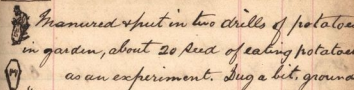 Manured & put in two drills of potatoe
in garden, about 20 seed of eating potatoe
as an experiment. Dug a bit, ground